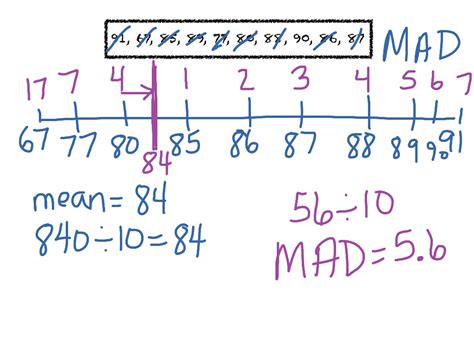 91, 67, 85, 89, 77, 80, 88, 90, 86, 87
MAD
17 7 4 1 2 3 4 5 6 7
67 77 80 85 86 87 88 89 90 91
84
mean = 84
840÷10=84
56÷10
MAD=5.6